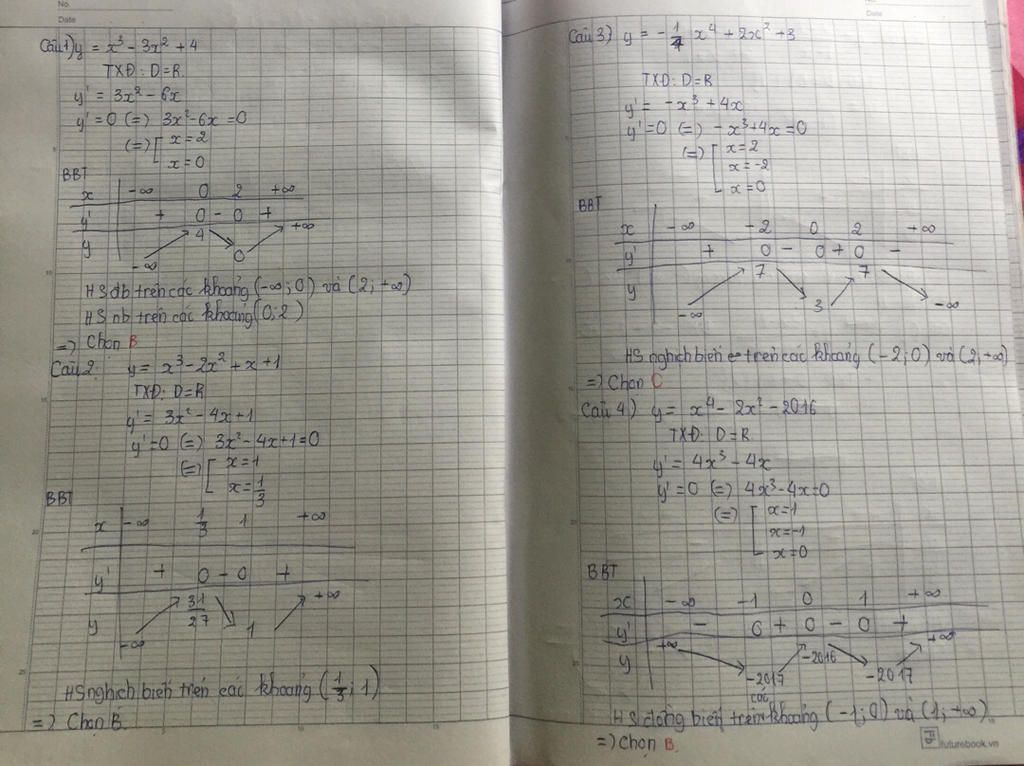 No.
Date
Câu 1) y = x³ - 3x² + 4
TXĐ: D=R.
y' = 3x² - 6x
y' = 0 (=) 3x² - 6x = 0
(=) [ x = 2
x = 0
BBT
x | -∞ 0 2 +∞
y' | + 0 - 0 +
y | -∞ 4 0 +∞
HS đb trên các khoảng (-∞; 0) và (2; +∞)
HS nb trên các khoảng (0; 2)
=) Chọn B
Câu 2. y = x³ - 2x² + x + 1
TXĐ: D=R
y' = 3x² - 4x + 1
y' = 0 (=) 3x² - 4x + 1 = 0
(=) [ x = 1
x = 1/3
BBT
x | -∞ 1/3 1 +∞
y' | + 0 - 0 +
y | -∞ 31/27 1 +∞
HS nghịch biến trên các khoảng (1/3; 1)
=) Chọn B.
Date
Câu 3) y = -1/4 x⁴ + 2x² + 3
TXĐ: D=R
y' = -x³ + 4x
y' = 0 (=) -x³ + 4x = 0
(=) [ x = 2
x = -2
x = 0
BBT
x | -∞ -2 0 2 +∞
y' | + 0 - 0 + 0 -
y | -∞ 7 3 7 -∞
HS nghịch biến trên các khoảng (-2; 0) và (2; +∞)
=) Chọn C
Câu 4.) y = x⁴ - 2x² - 2016
TXĐ: D=R
y' = 4x³ - 4x
y' = 0 (=) 4x³ - 4x = 0
(=) [ x = 1
x = -1
x = 0
BBT
x | -∞ -1 0 1 +∞
y' | - 0 + 0 - 0 +
y | +∞ -2017 -2016 -2017 +∞
các
HS đồng biến trên khoảng (-1; 0) và (1; +∞)
=) Chọn B.
futurebook.vn